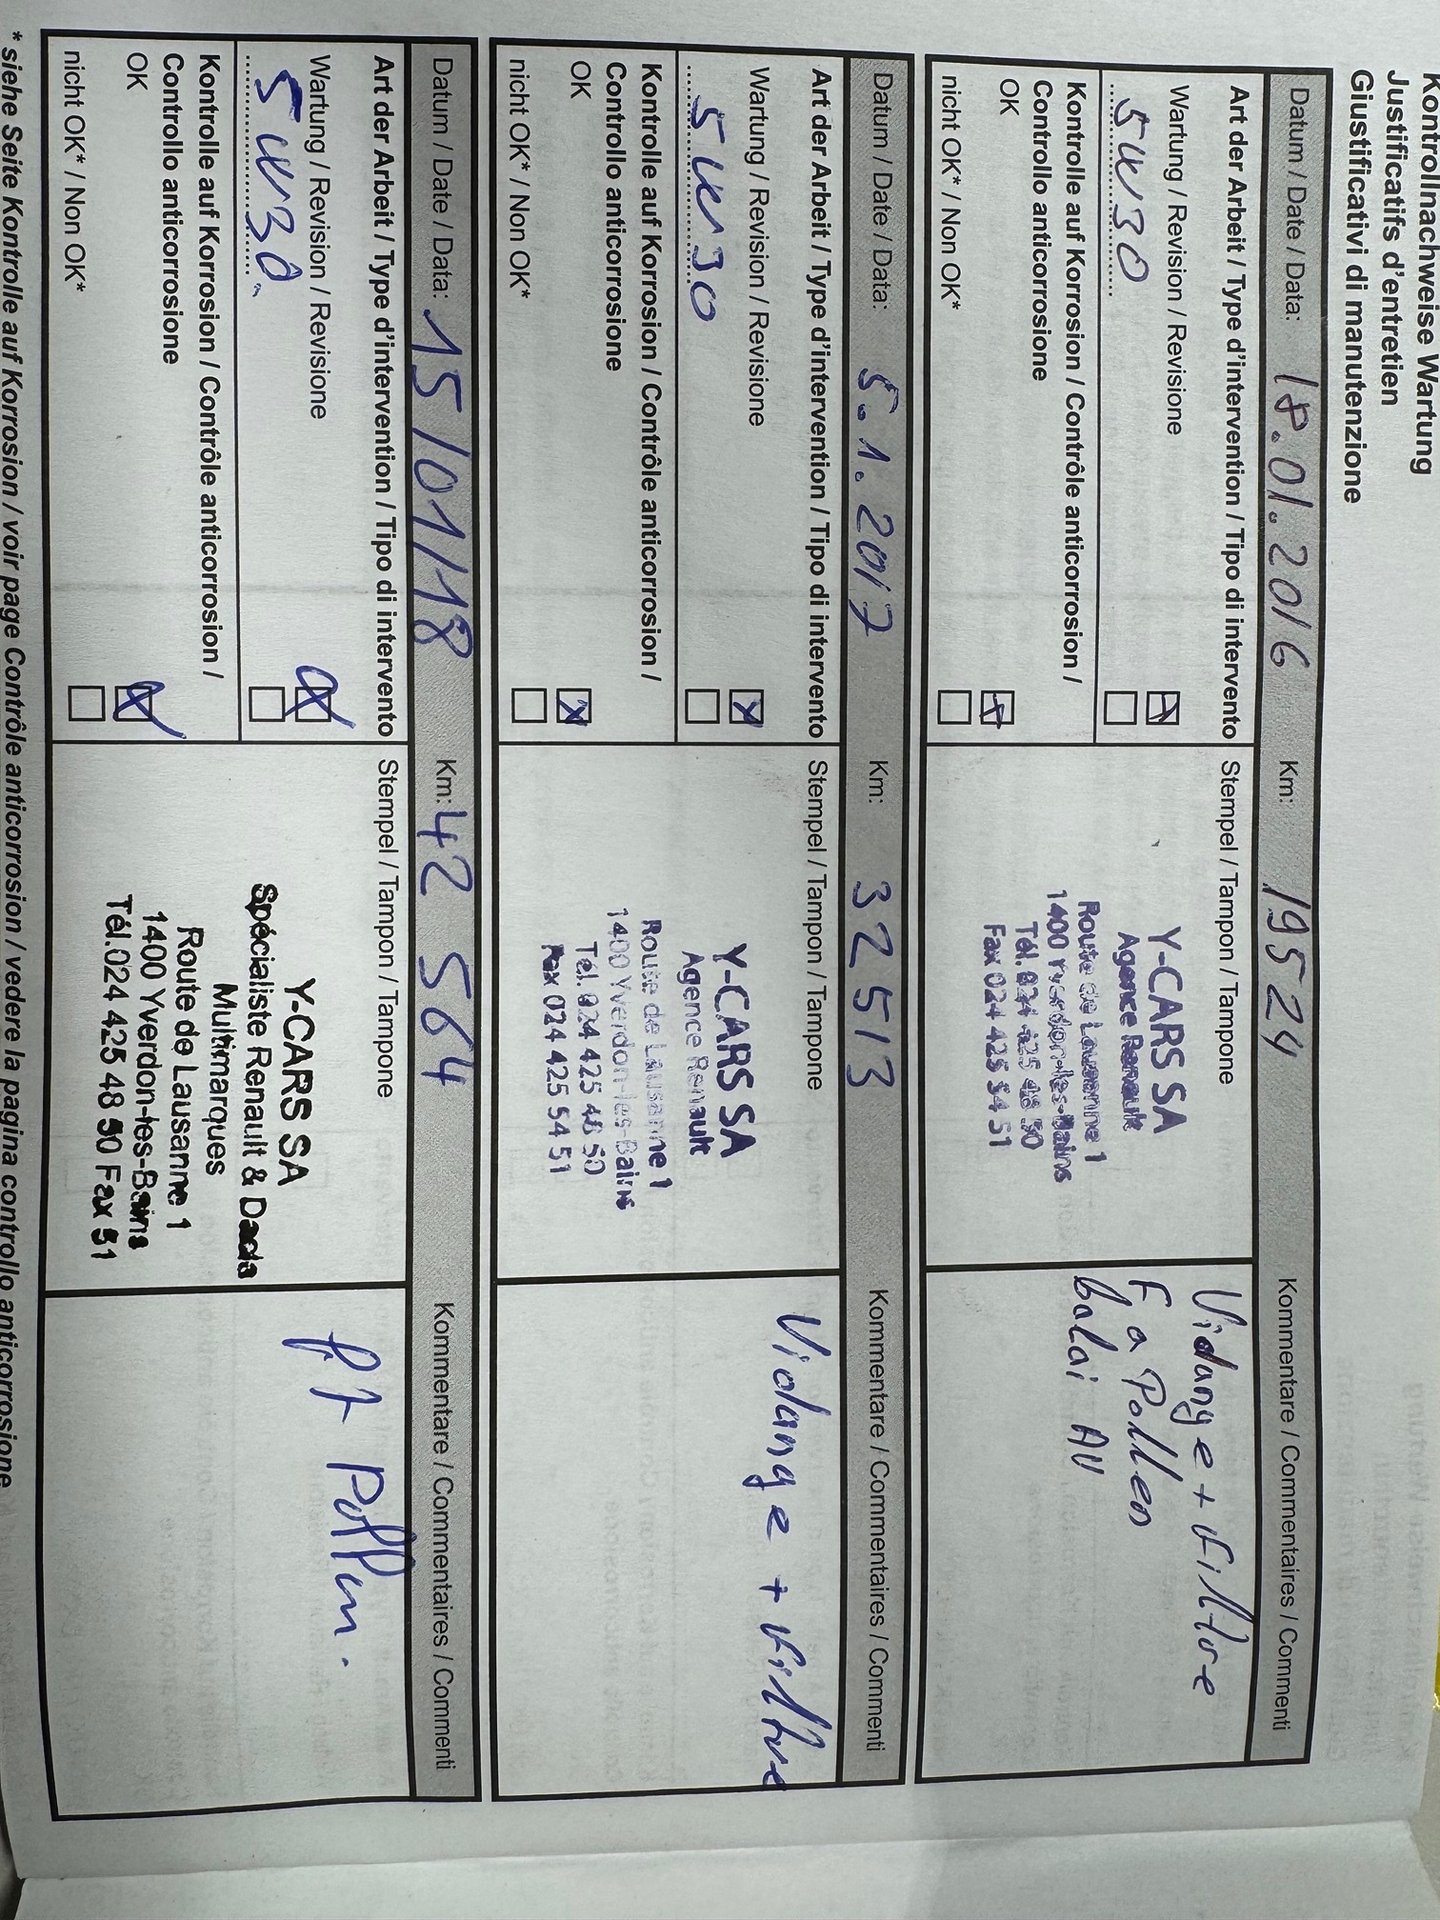 Kontrollnachweise Wartung
Justificatifs d'entretien
Giustificativi di manutenzione
Datum / Date / Data: 18.01.2016 Km: 19524 Kommentare / Commentaires / Commenti
Art der Arbeit / Type d'intervention / Tipo di intervento
Wartung / Revision / Revisione
5W30
Kontrolle auf Korrosion / Contrôle anticorrosion /
Controllo anticorrosione
OK
nicht OK* / Non OK*
Stempel / Tampon / Tampone
Y-CARS SA
Agence Renault
Route de Lausanne 1
1400 Yverdon-les-Bains
Tél. 024 425 48 50
Fax 024 425 54 51
Vidange + filtre
F a Pollen
balai AV
Datum / Date / Data: 5.1.2017 Km: 32513 Kommentare / Commentaires / Commenti
Art der Arbeit / Type d'intervention / Tipo di intervento
Wartung / Revision / Revisione
5W30
Kontrolle auf Korrosion / Contrôle anticorrosion /
Controllo anticorrosione
OK
nicht OK* / Non OK*
Stempel / Tampon / Tampone
Y-CARS SA
Agence Renault
Route de Lausanne 1
1400 Yverdon-les-Bains
Tél. 024 425 48 50
Fax 024 425 54 51
Vidange + filtre
Datum / Date / Data: 15/01/18 Km: 42 564 Kommentare / Commentaires / Commenti
Art der Arbeit / Type d'intervention / Tipo di intervento
Wartung / Revision / Revisione
5W30.
Kontrolle auf Korrosion / Contrôle anticorrosion /
Controllo anticorrosione
OK
nicht OK* / Non OK*
Stempel / Tampon / Tampone
Y-CARS SA
Spécialiste Renault & Dacia
Multimarques
Route de Lausanne 1
1400 Yverdon-les-Bains
Tél.024 425 48 50 Fax 51
* siehe Seite Kontrolle auf Korrosion / voir page Contrôle anticorrosion / vedere la pagina controllo anticorrosione